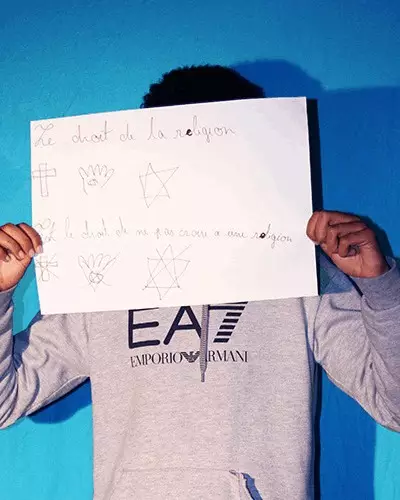 Le droit de la religion
Et le droit de ne pas croire a une religion
EA7
EMPORIO ARMANI